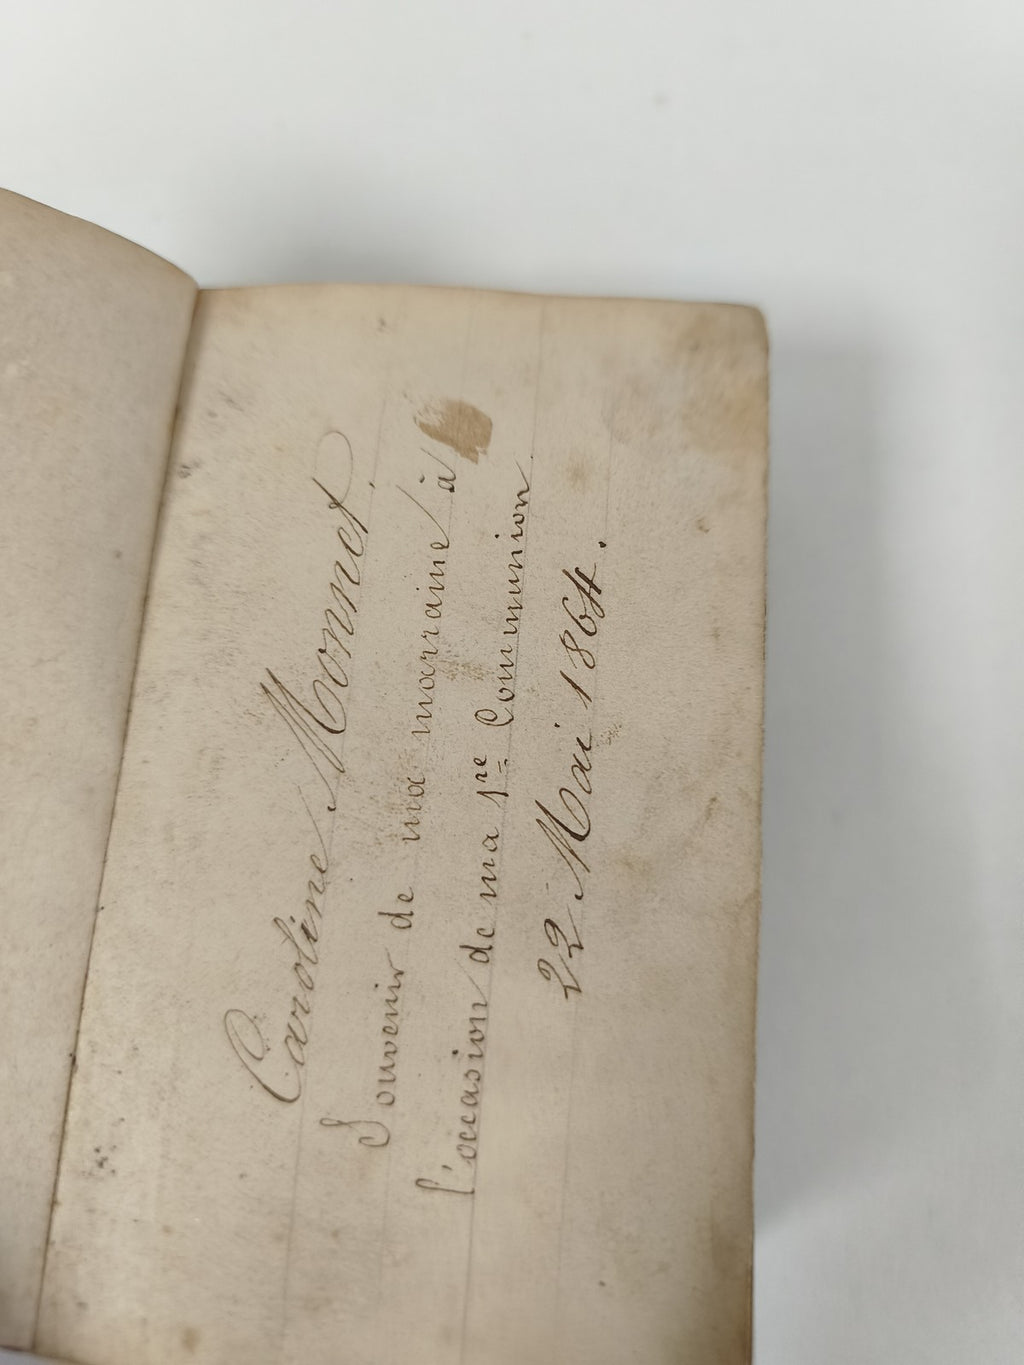 Caroline Monnet.
Souvenir de ma marraine à
l'occasion de ma 1re Communion.
22 Mai 1864.